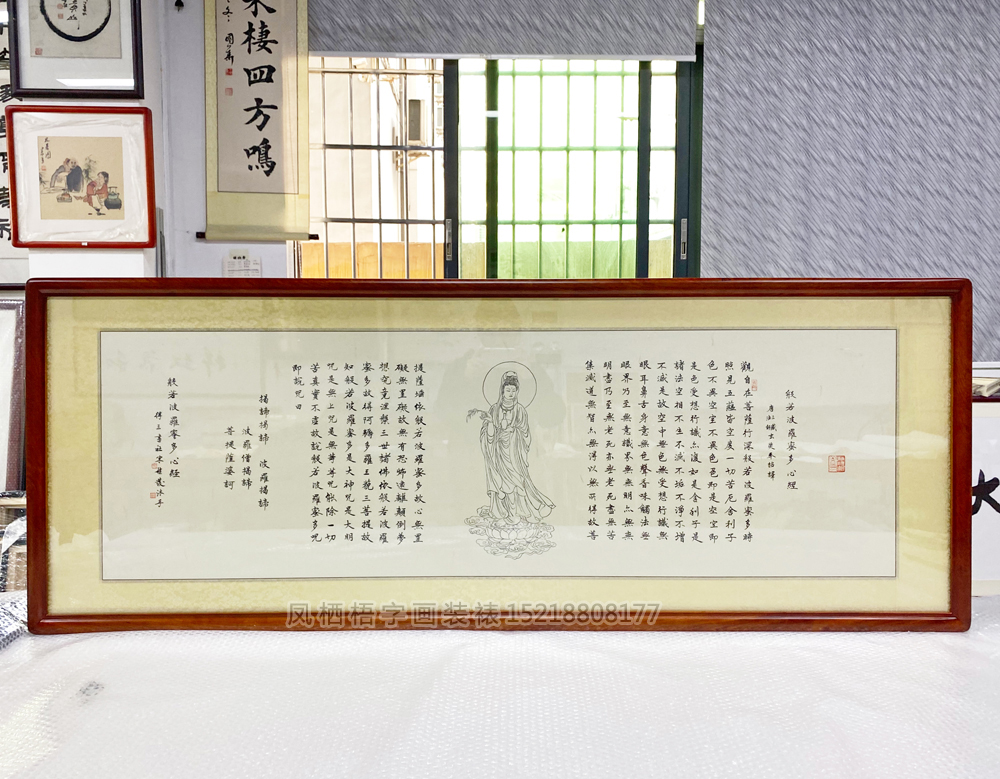 棲四方鳴
般若波羅蜜多心經
觀自在菩薩行深般若波羅蜜多時
照見五蘊皆空度一切苦厄舍利子
色不異空空不異色色即是空空即
是色受想行識亦復如是舍利子是
諸法空相不生不滅不垢不淨不增
不減是故空中無色無受想行識無
眼耳鼻舌身意無色聲香味觸法無
眼界乃至無意識界無無明亦無無
明盡乃至無老死亦無老死盡無苦
集滅道無智亦無得以無所得故菩
提薩埵依般若波羅蜜多故心無罣
礙無罣礙故無有恐怖遠離顛倒夢
想究竟涅槃三世諸佛依般若波羅
蜜多故得阿耨多羅三藐三菩提故
知般若波羅蜜多是大神咒是大明
咒是無上咒是無等等咒能除一切
苦真實不虛故說般若波羅蜜多咒
即說咒曰
揭諦揭諦 波羅揭諦
波羅僧揭諦
菩提薩婆訶
般若波羅蜜多心經
大
凤栖梧字画装裱15218808177